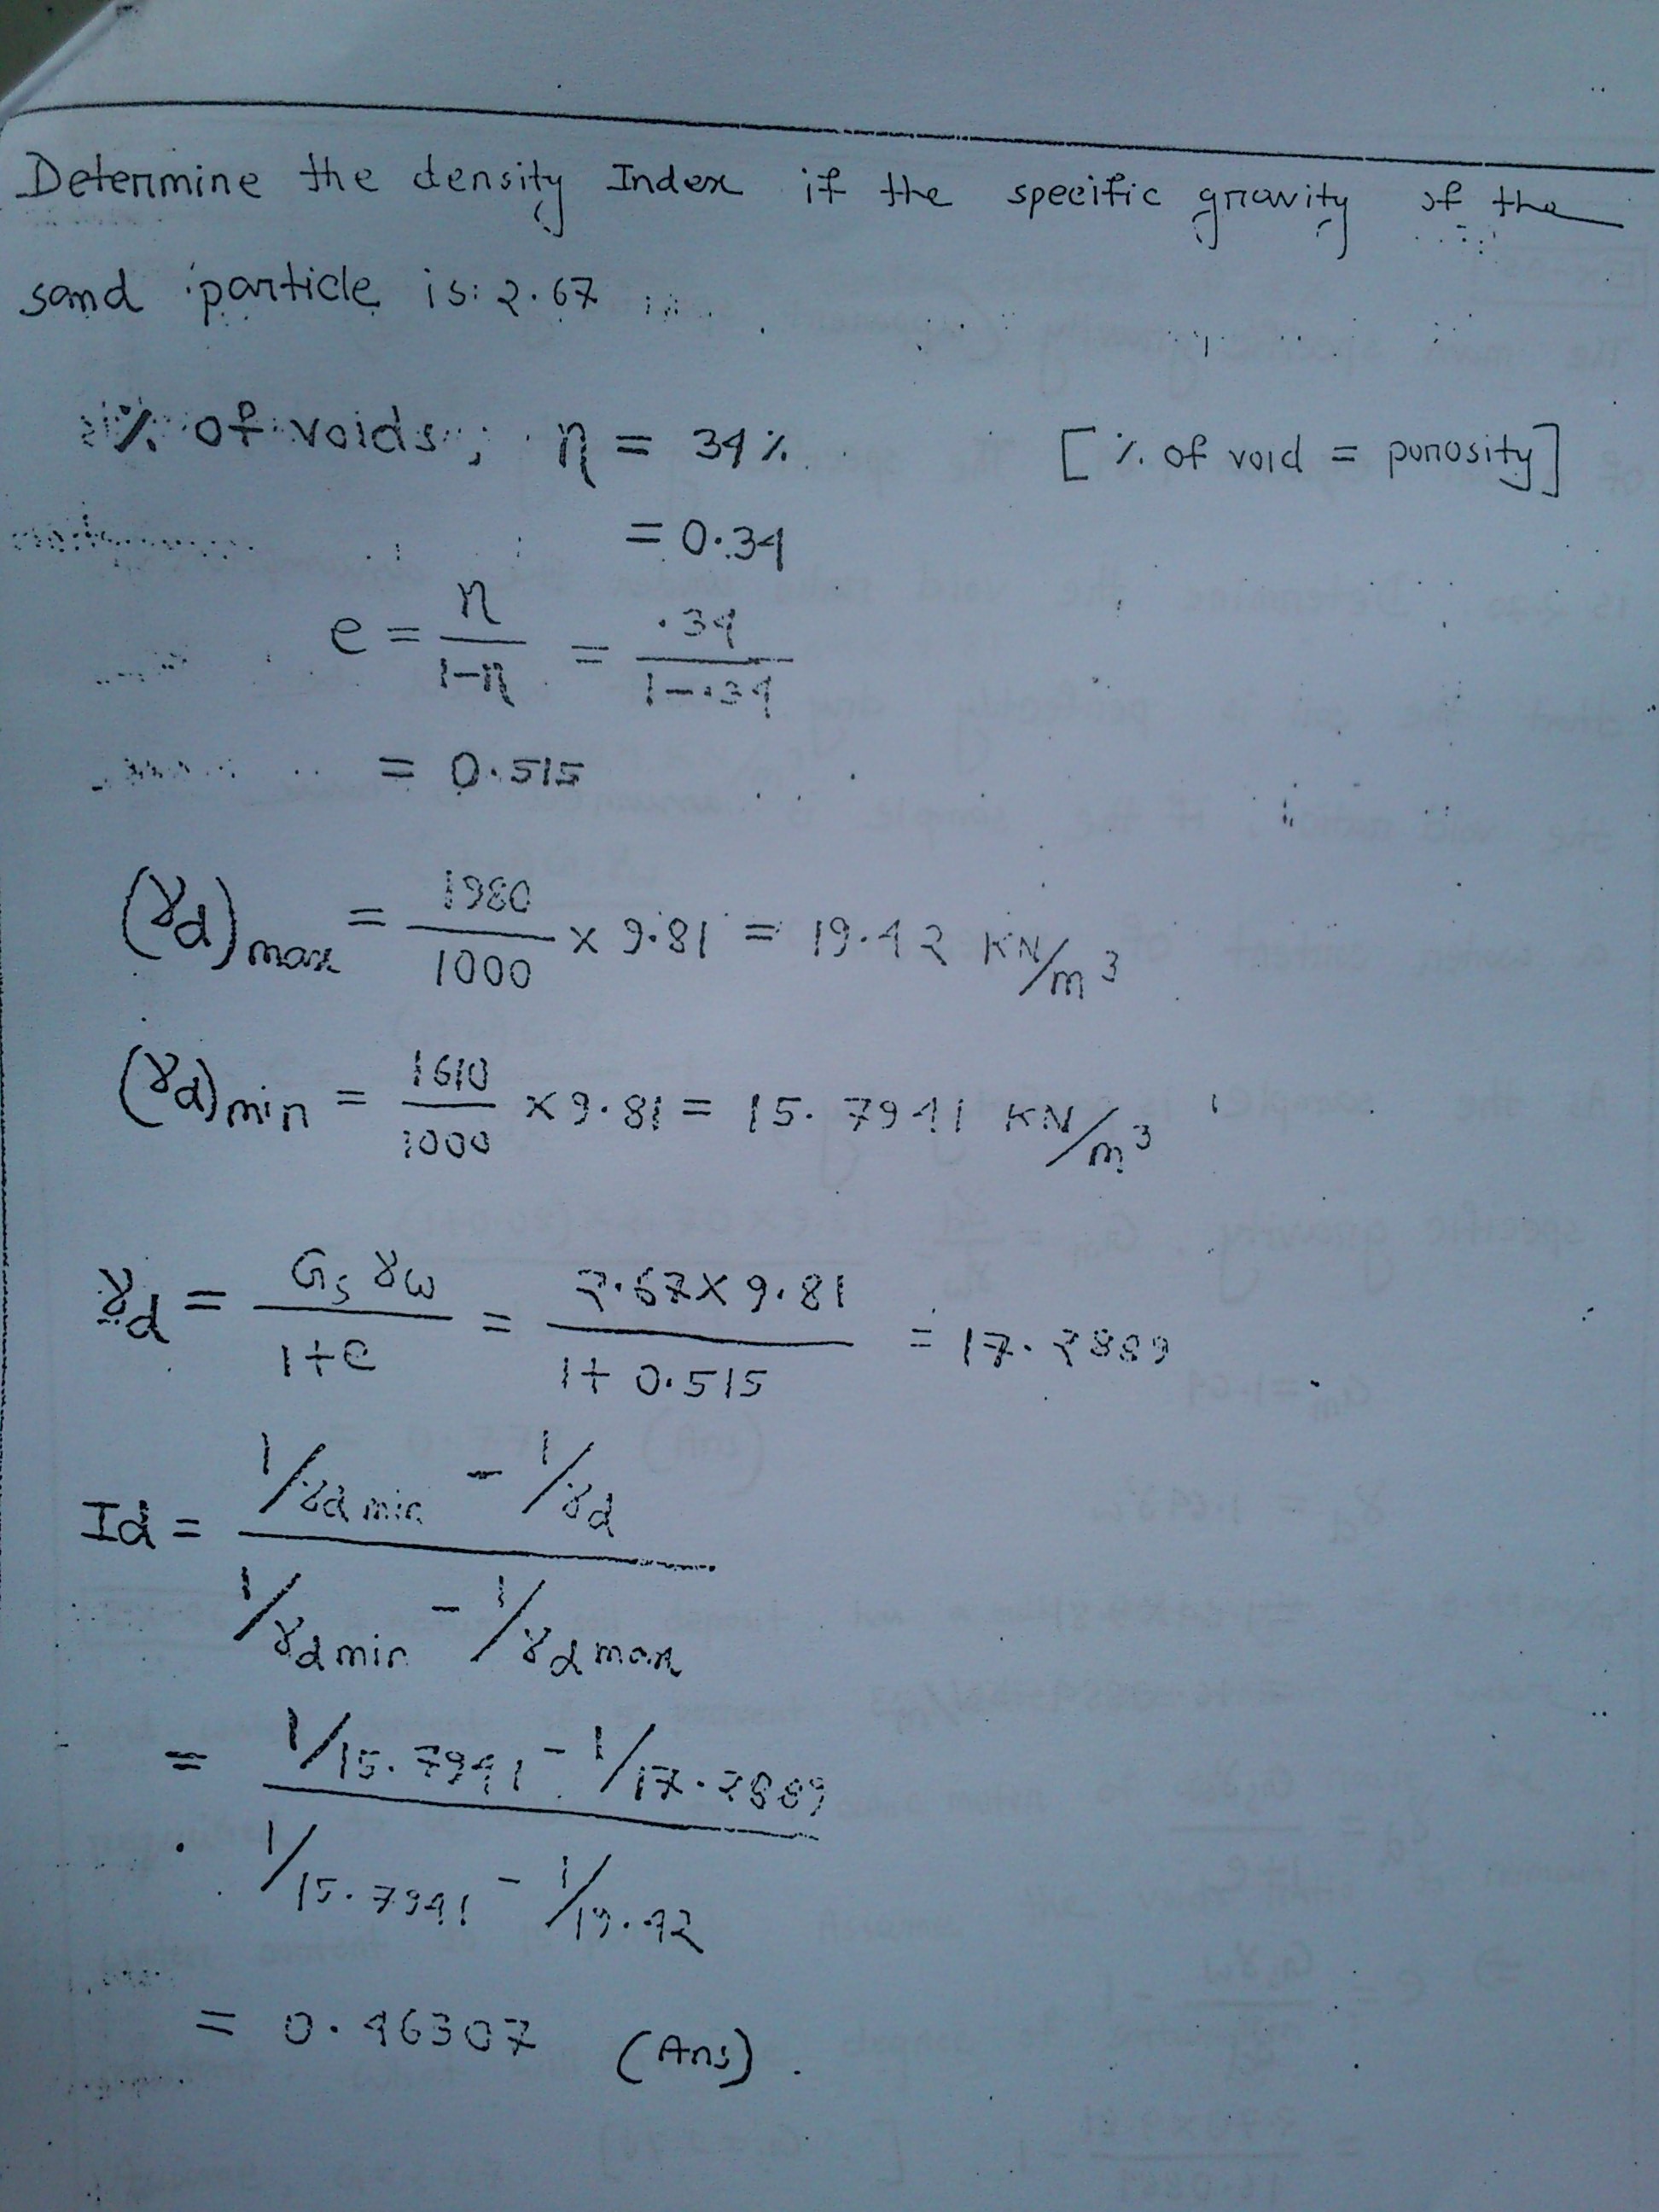 Determine the density Index if the specific gravity of the
sand particle is 2.67
% of voids, η = 34% [% of void = porosity]
= 0.34
e = η/1-η = .34/1-.34
= 0.515
(γd)max = 1980/1000 × 9.81 = 19.42 KN/m³
(γd)min = 1610/1000 × 9.81 = 15.7941 KN/m³
γd = Gs γω/1+e = 2.67×9.81/1+0.515 = 17.2889
Id = 1/γd min - 1/γd
1/γd min - 1/γd max
= 1/15.7941 - 1/17.2889
1/15.7941 - 1/19.42
= 0.46307 (Ans).